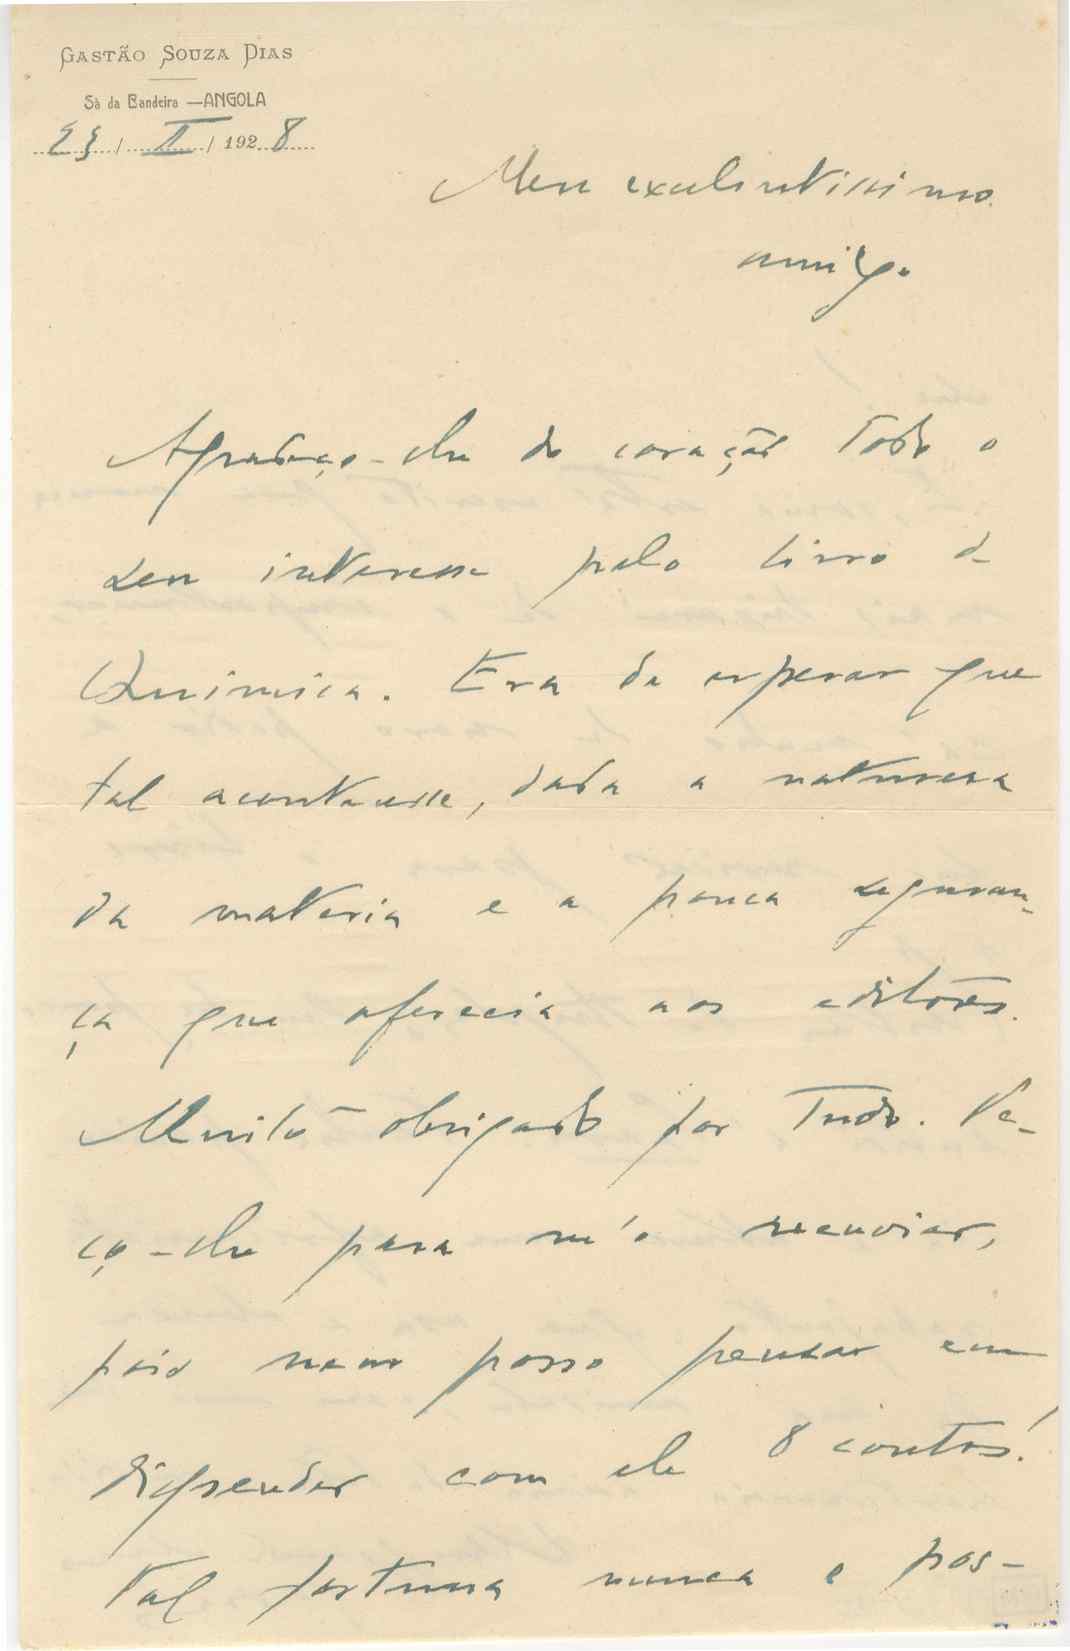 GASTÃO SOUZA DIAS
Sá da Bandeira —ANGOLA
23 / II / 1928
Meu excelentissimo
amigo
Agradeço-lhe do coração todo o
seu interesse pelo livro de
Quimica. Era de esperar que
tal acontecesse, dada a natureza
da materia e a pouca seguran-
ça que oferecia aos editores.
Muito obrigado por tudo. Pe-
ço-lhe para m'o reenviar,
pois nem posso pensar em
dispender com ele 8 contos!
Tal fortuna nunca a pos-